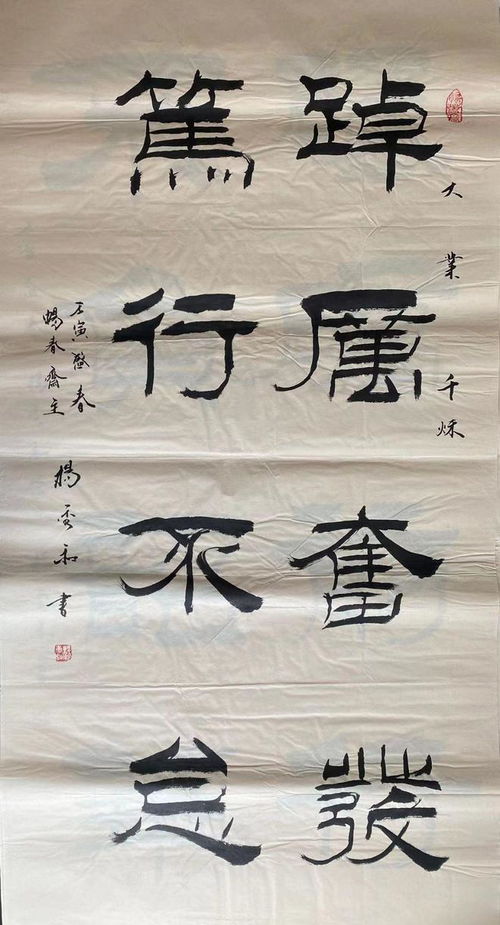 大業千秌
踔厲奮發
篤行不怠
壬寅啓春
暢春齋主
楊雲和書